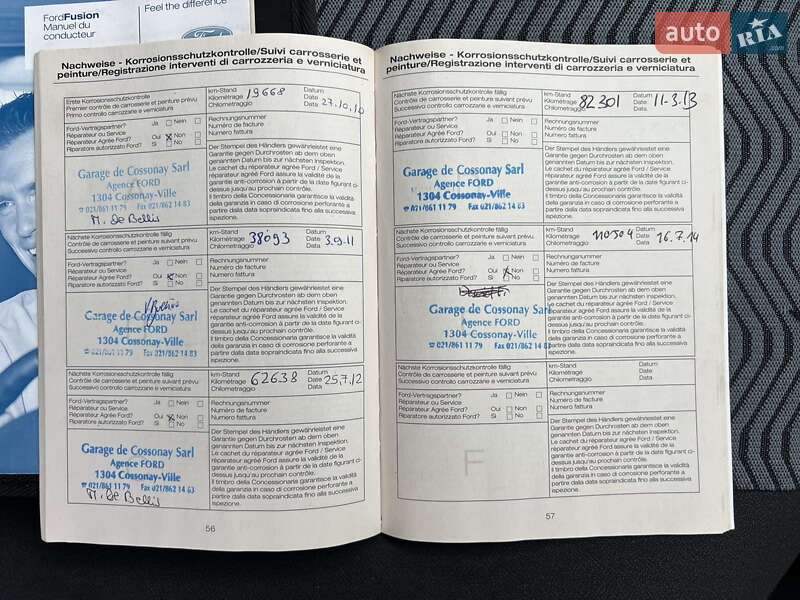 FordFusion
Manuel du
conducteur
Feel the difference
Ford
auto RIA.com
Nachweise - Korrosionsschutzkontrolle/Suivi carrosserie et
peinture/Registrazione interventi di carrozzeria e verniciatura
Erste Korrosionsschutzkontrolle
Premier contrôle de carrosserie et peinture prévu
Primo controllo carrozzerie e verniciatura
km-Stand
Kilométrage
Chilometraggio
19668
Datum
Date
Data
27.10.10
Ford-Vertragspartner?
Réparateur ou Service
Réparateur Agrée Ford?
Riparatore autorizzato Ford?
Ja Nein
Oui Non
Si No
Rechnungsnummer
Numéro de facture
Numero fattura
Garage de Cossonay Sarl
Agence FORD
1304 Cossonay-Ville
021/861 11 79 Fax 021/862 14 83
M. De Bellis
Der Stempel des Händlers gewährleistet eine
Garantie gegen Durchrosten ab dem oben
genannten Datum bis zur nächsten Inspektion.
Le cachet du réparateur agréé Ford / Service
réparateur agréé Ford assure la validité de la
garantie anti-corrosion à partir de la date figurant ci-
dessus jusqu'au prochain contrôle.
Il timbro della Concessionaria garantisce la validità
della garanzia in caso di corrosione perforante a
partire dalla data soprindicata fino alla successiva
spezione.
Nächste Korrosionsschutzkontrolle fällig
Contrôle de carrosserie et peinture suivant prévu
Successivo controllo carrozzerie e verniciatura
km-Stand
Kilométrage
Chilometraggio
38093
Datum
Date
Data
3.9.11
Ford-Vertragspartner?
Réparateur ou Service
Réparateur Agrée Ford?
Riparatore autorizzato Ford?
Ja Nein
Oui Non
Si No
Rechnungsnummer
Numéro de facture
Numero fattura
Garage de Cossonay Sarl
Agence FORD
1304 Cossonay-Ville
021/861 11 79 Fax 021/862 14 83
Der Stempel des Händlers gewährleistet eine
Garantie gegen Durchrosten ab dem oben
genannten Datum bis zur nächsten Inspektion.
Le cachet du réparateur agréé Ford / Service
réparateur agréé Ford assure la validité de la
garantie anti-corrosion à partir de la date figurant ci-
dessus jusqu'au prochain contrôle.
Il timbro della Concessionaria garantisce la validità
della garanzia in caso di corrosione perforante a
partire dalla data soprindicata fino alla successiva
spezione.
Nächste Korrosionsschutzkontrolle fällig
Contrôle de carrosserie et peinture suivant prévu
Successivo controllo carrozzerie e verniciatura
km-Stand
Kilométrage
Chilometraggio
62638
Datum
Date
Data
25.7.12
Ford-Vertragspartner?
Réparateur ou Service
Réparateur Agrée Ford?
Riparatore autorizzato Ford?
Ja Nein
Oui Non
Si No
Rechnungsnummer
Numéro de facture
Numero fattura
Garage de Cossonay Sarl
Agence FORD
1304 Cossonay-Ville
021/861 11 79 Fax 021/862 14 83
M. De Bellis
Der Stempel des Händlers gewährleistet eine
Garantie gegen Durchrosten ab dem oben
genannten Datum bis zur nächsten Inspektion.
Le cachet du réparateur agréé Ford / Service
réparateur agréé Ford assure la validité de la
garantie anti-corrosion à partir de la date figurant ci-
dessus jusqu'au prochain contrôle.
Il timbro della Concessionaria garantisce la validità
della garanzia in caso di corrosione perforante a
partire dalla data soprindicata fino alla successiva
spezione.
56
Nachweise - Korrosionsschutzkontrolle/Suivi carrosserie et
peinture/Registrazione interventi di carrozzeria e verniciatura
Nächste Korrosionsschutzkontrolle fällig
Contrôle de carrosserie et peinture suivant prévu
Successivo controllo carrozzerie e verniciatura
km-Stand
Kilométrage
Chilometraggio
82301
Datum
Date
Data
11-3.13
Ford-Vertragspartner?
Réparateur ou Service
Réparateur Agrée Ford?
Riparatore autorizzato Ford?
Ja Nein
Oui Non
Si No
Rechnungsnummer
Numéro de facture
Numero fattura
Garage de Cossonay Sarl
Agence FORD
1304 Cossonay-Ville
021/861 11 79 Fax 021/862 14 83
Der Stempel des Händlers gewährleistet eine
Garantie gegen Durchrosten ab dem oben
genannten Datum bis zur nächsten Inspektion.
Le cachet du réparateur agréé Ford / Service
réparateur agréé Ford assure la validité de la
garantie anti-corrosion à partir de la date figurant ci-
dessus jusqu'au prochain contrôle.
Il timbro della Concessionaria garantisce la validità
della garanzia in caso di corrosione perforante a
partire dalla data soprindicata fino alla successiva
spezione.
Nächste Korrosionsschutzkontrolle fällig
Contrôle de carrosserie et peinture suivant prévu
Successivo controllo carrozzerie e verniciatura
km-Stand
Kilométrage
Chilometraggio
110504
Datum
Date
Data
16.7.14
Ford-Vertragspartner?
Réparateur ou Service
Réparateur Agrée Ford?
Riparatore autorizzato Ford?
Ja Nein
Oui Non
Si No
Rechnungsnummer
Numéro de facture
Numero fattura
Garage de Cossonay Sarl
Agence FORD
1304 Cossonay-Ville
021/861 11 79 Fax 021/862 14 83
Der Stempel des Händlers gewährleistet eine
Garantie gegen Durchrosten ab dem oben
genannten Datum bis zur nächsten Inspektion.
Le cachet du réparateur agréé Ford / Service
réparateur agréé Ford assure la validité de la
garantie anti-corrosion à partir de la date figurant ci-
dessus jusqu'au prochain contrôle.
Il timbro della Concessionaria garantisce la validità
della garanzia in caso di corrosione perforante a
partire dalla data soprindicata fino alla successiva
spezione.
Nächste Korrosionsschutzkontrolle fällig
Contrôle de carrosserie et peinture suivant prévu
Successivo controllo carrozzerie e verniciatura
km-Stand
Kilométrage
Chilometraggio
Datum
Date
Data
Ford-Vertragspartner?
Réparateur ou Service
Réparateur Agrée Ford?
Riparatore autorizzato Ford?
Ja Nein
Oui Non
Si No
Rechnungsnummer
Numéro de facture
Numero fattura
F
Der Stempel des Händlers gewährleistet eine
Garantie gegen Durchrosten ab dem oben
genannten Datum bis zur nächsten Inspektion.
Le cachet du réparateur agréé Ford / Service
réparateur agréé Ford assure la validité de la
garantie anti-corrosion à partir de la date figurant ci-
dessus jusqu'au prochain contrôle.
Il timbro della Concessionaria garantisce la validità
della garanzia in caso di corrosione perforante a
partire dalla data soprindicata fino alla successiva
spezione.
57